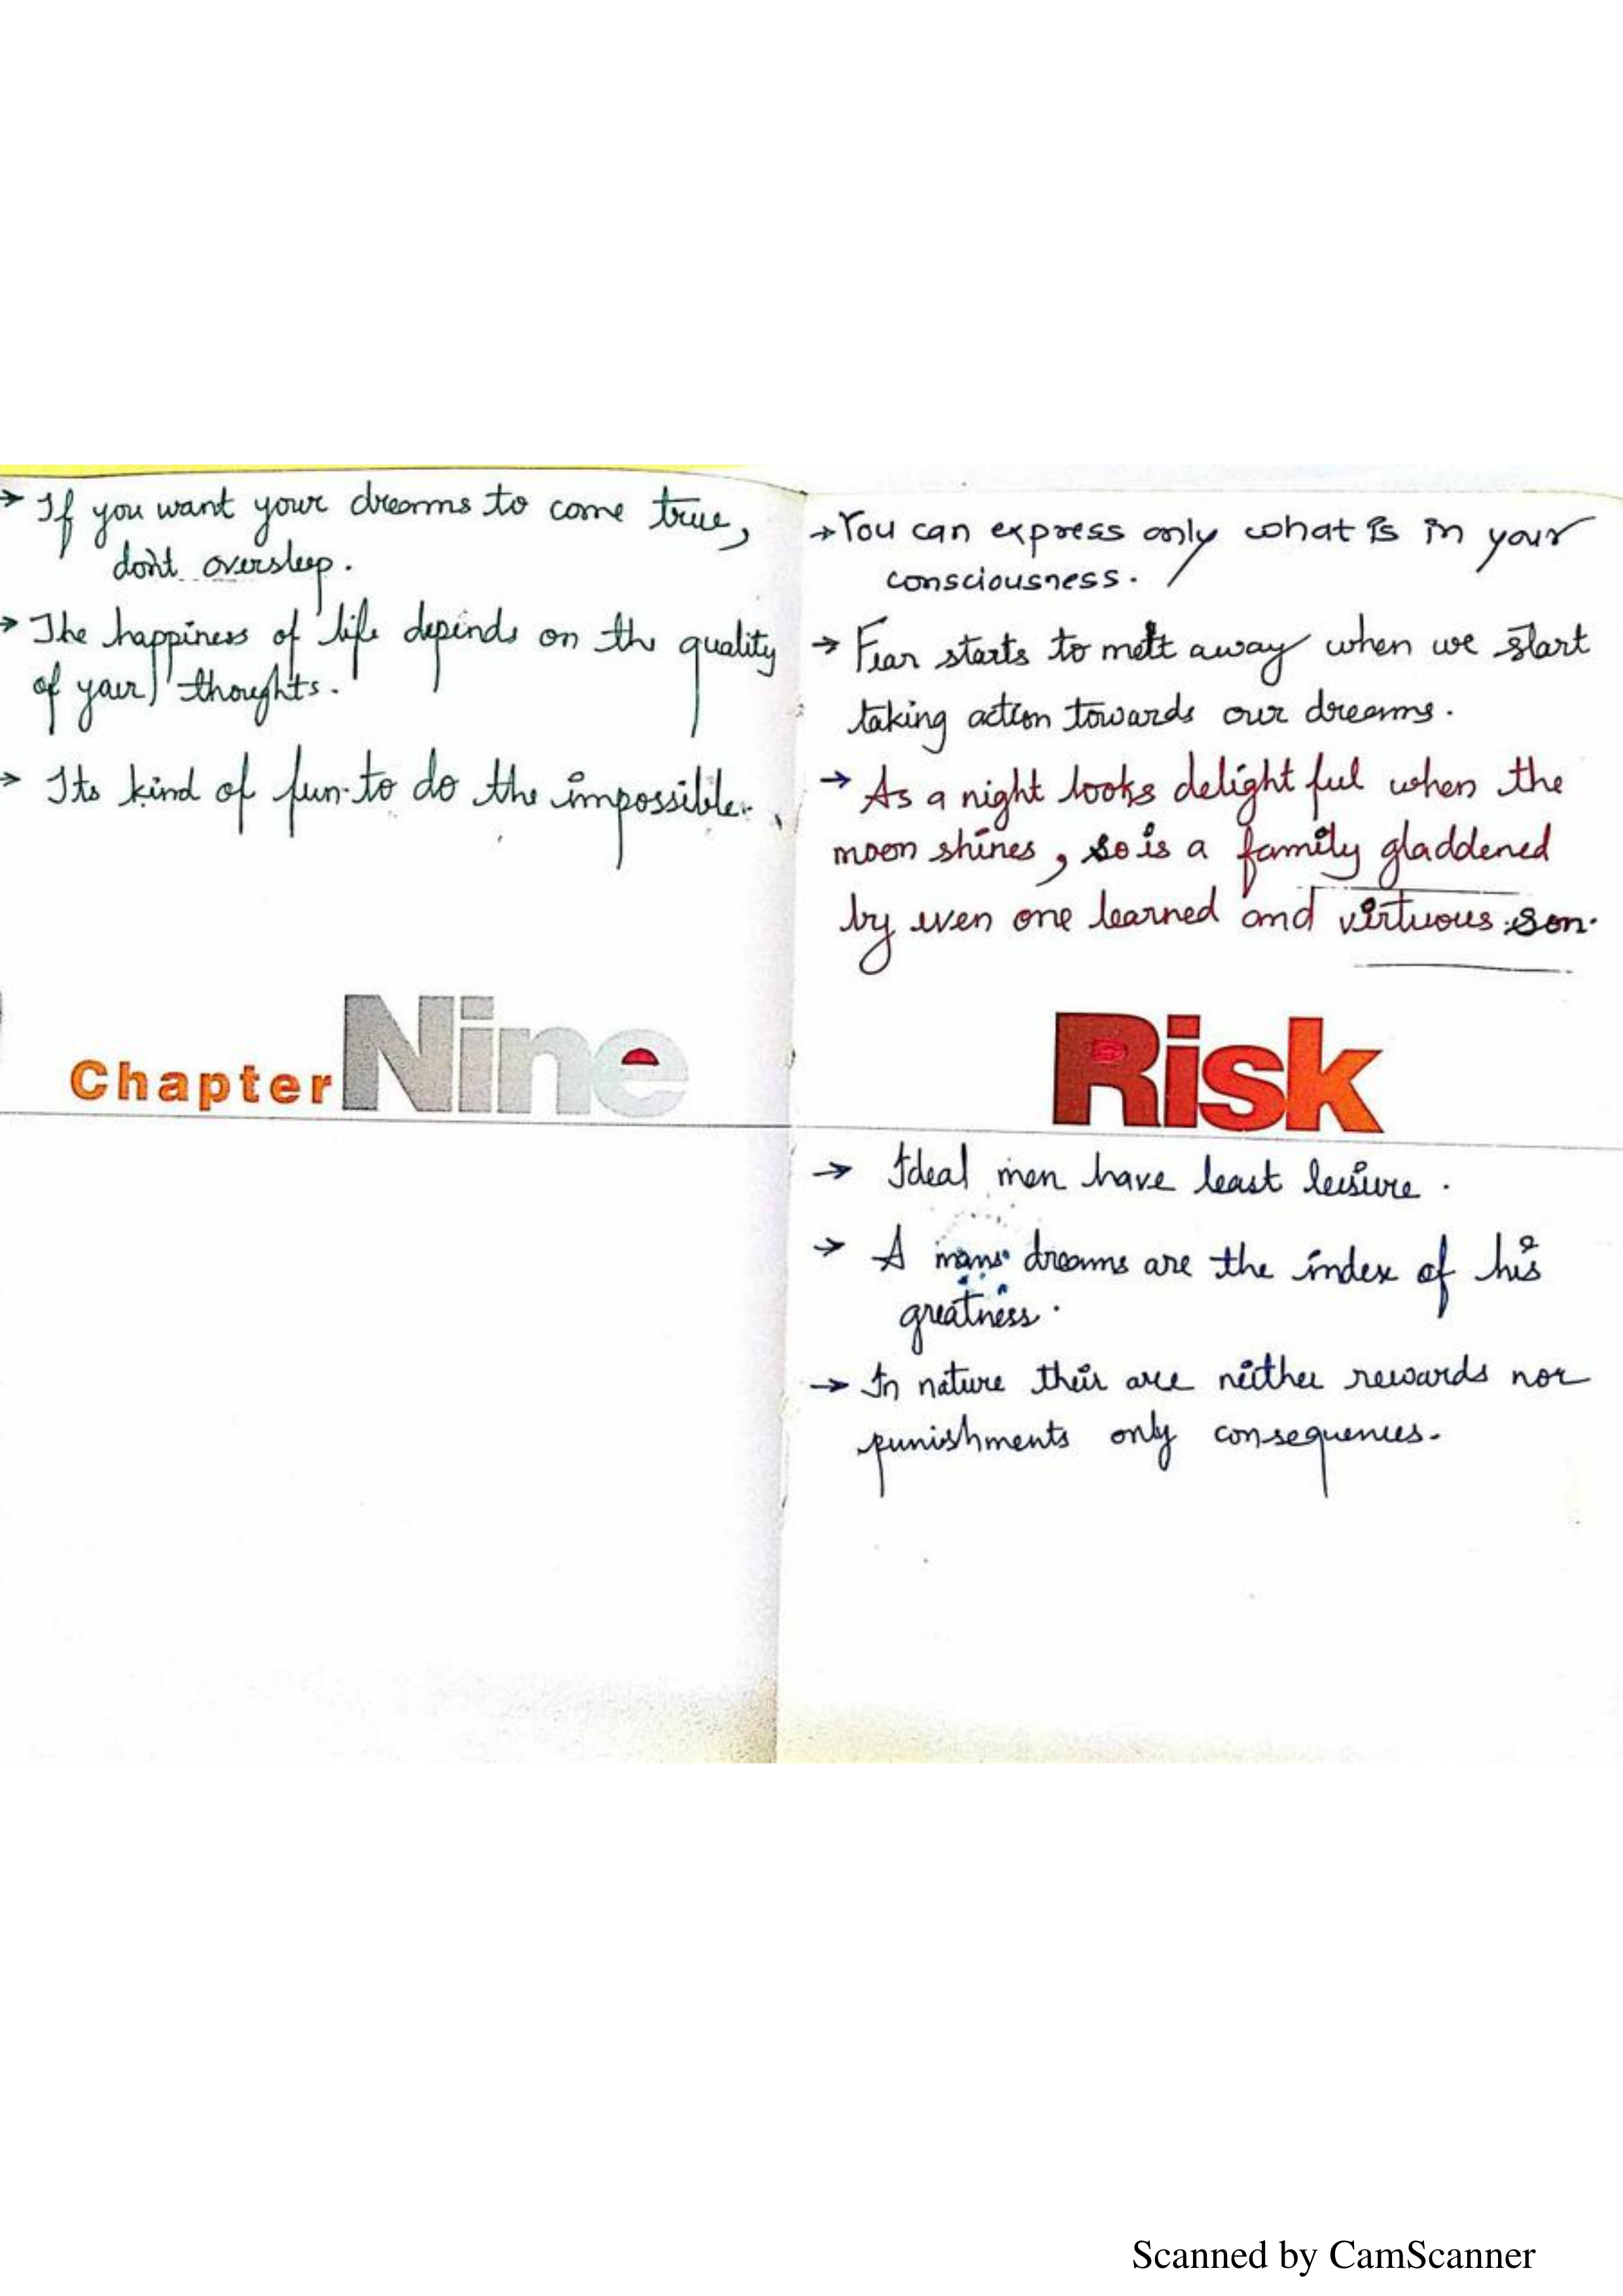 → If you want your dreams to come true,
don't oversleep.
→ The happiness of life depends on the quality
of your thoughts.
→ Its kind of fun to do the impossible.
Chapter Nine
→ You can express only what is in your
consciousness.
→ Fear starts to melt away when we start
taking action towards our dreams.
→ As a night looks delightful when the
moon shines, so is a family gladdened
by even one learned and virtuous son.
Risk
→ Ideal men have least leisure.
→ A mans dreams are the index of his
greatness.
→ In nature their are neither rewards nor
punishments only consequences.
Scanned by CamScanner